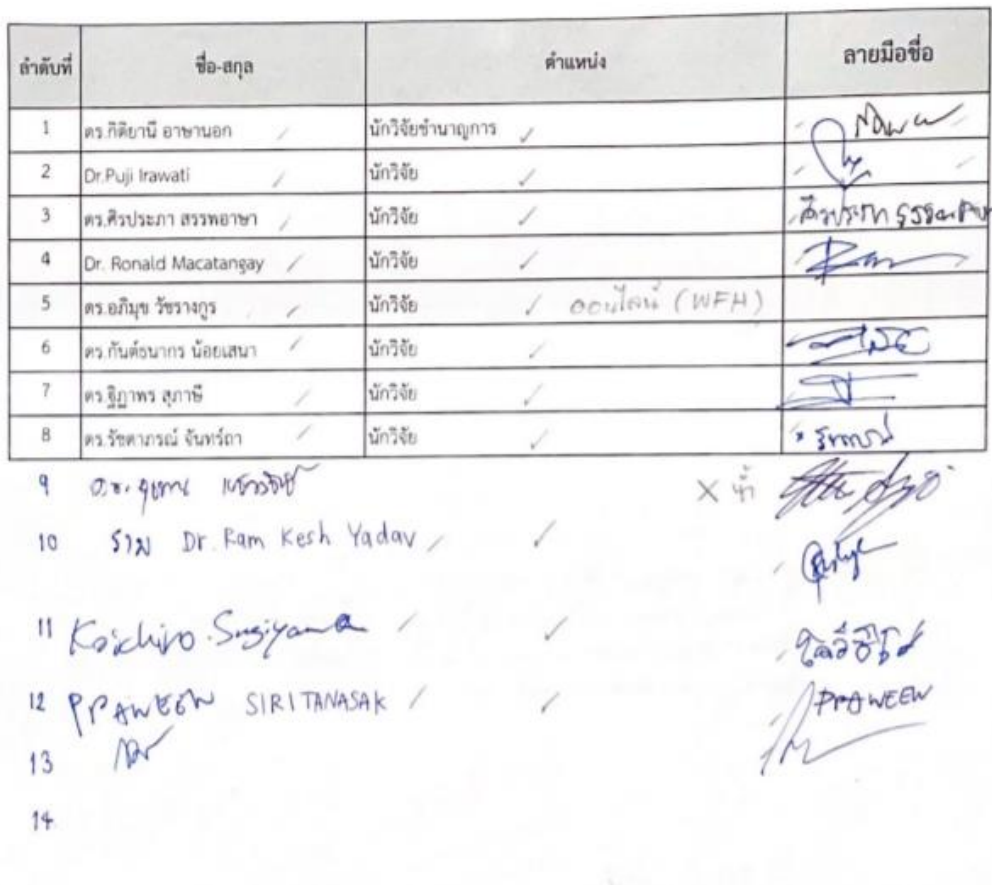 ลำดับที่ ชื่อ-สกุล ตำแหน่ง ลายมือชื่อ
1 ดร.กิติยานี อาษานอก นักวิจัยชำนาญการ
2 Dr.Puji Irawati นักวิจัย
3 ดร.ศิรประภา สรรพอาษา นักวิจัย ศิรประภา สรรพอาษา
4 Dr. Ronald Macatangay นักวิจัย
5 ดร.อภิมุข วัชรางกูร นักวิจัย ออนไลน์ (WFH)
6 ดร.กันต์ธนากร น้อยเสนา นักวิจัย
7 ดร.ฐิฏาพร สุภาษี นักวิจัย
8 ดร.รัชดาภรณ์ จันทร์ถา นักวิจัย
9 X ซ้ำ
10 ราม Dr. Ram Kesh Yadav
11 Koichiro Sugiyama
12 PRAWEEN SIRITANASAK PRAWEEN
13
14